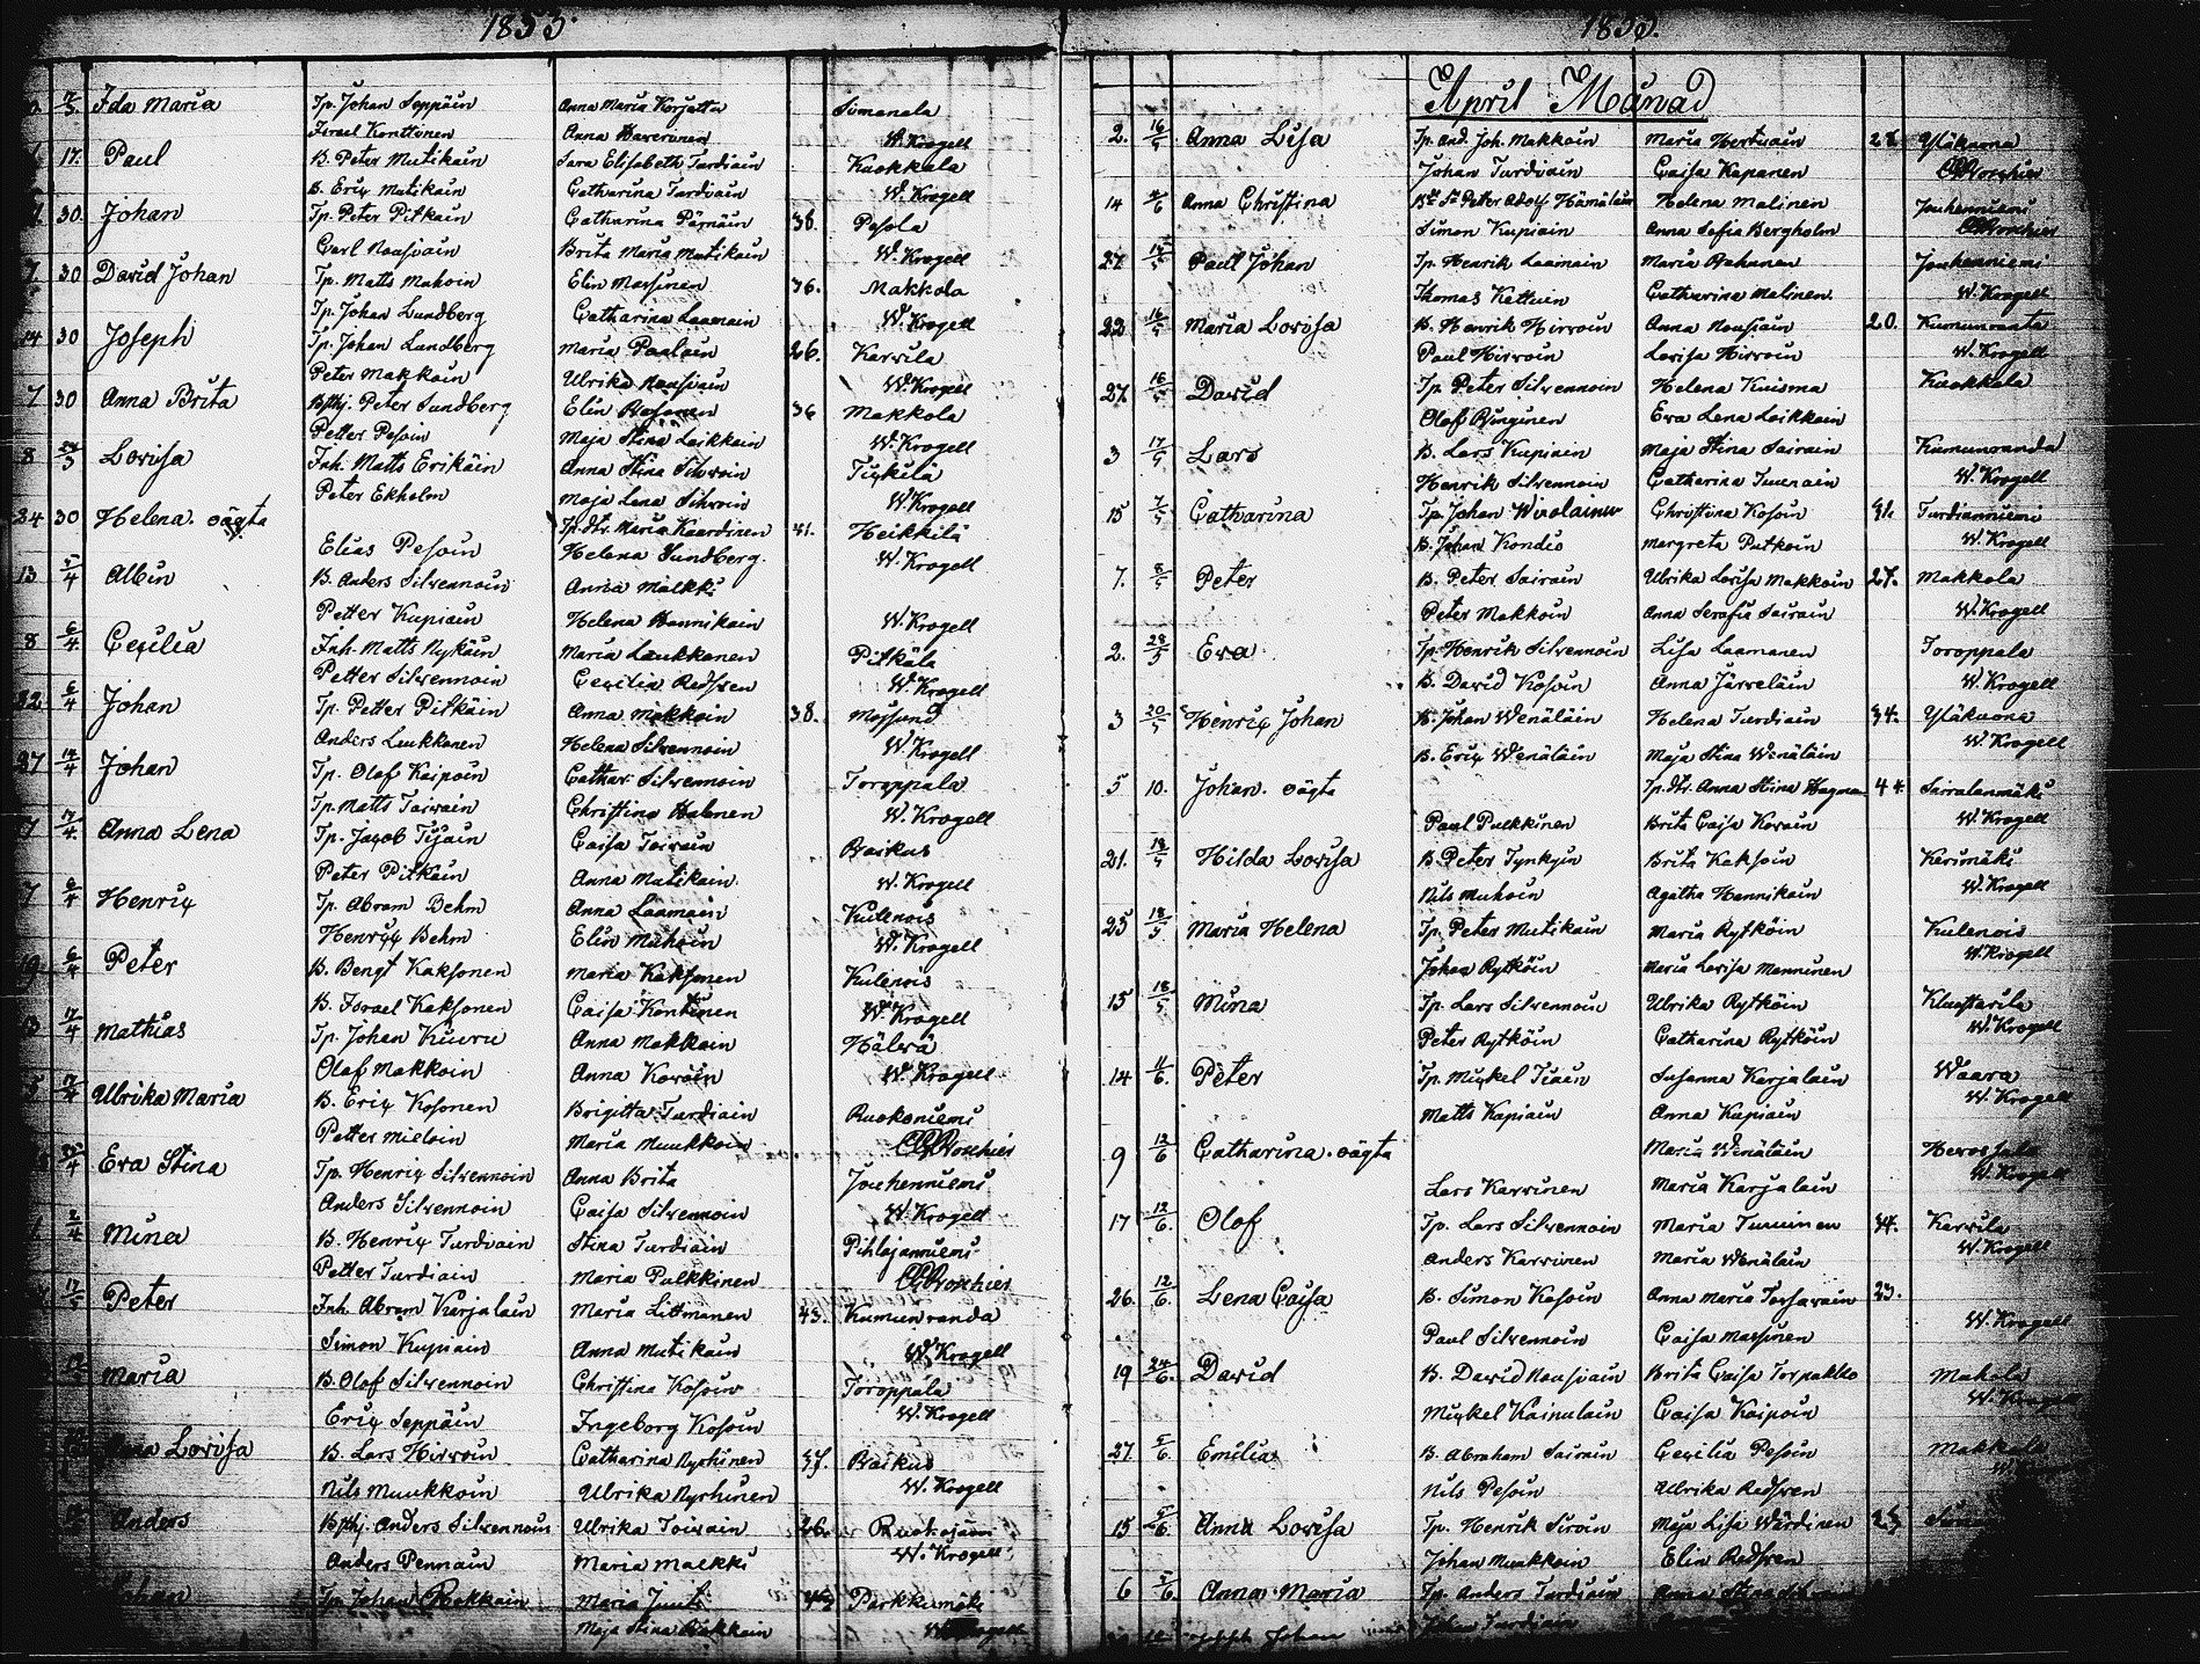 1853.
7/3. Ida Maria Tp. Johan Seppäin Anna Maria Korjattu Simanala
Israel Konttinen Anna Haverinen W. Krogell
17. Paul B. Peter Mutikain Sara Elisabeth Turdiain Kuokkala
B. Eric Mutikain Catharina Turdiain W. Krogell
30. Johan Tp. Peter Pitkäin Catharina Pärnäin 38. Pesola
Carl Nousiain Brita Maria Mutikain W. Krogell
7. 30 David Johan Tp. Matts Muhoin Elin Massinen 36. Makkola
Tp. Johan Lundberg Catharina Laamain W. Krogell
14 30 Joseph Tp. Johan Lundberg Maria Paalain 26. Karvila
Peter Makkoin Ulrika Nousiain W. Krogell
7 30 Anna Brita Bsthj. Peter Sundberg Elin 36 Makkola
Petter Pesoin Maja Stina Loikkain W. Krogell
8 24/3 Lovisa Inh. Matts Erikäin Anna Stina Sihvoin Tickilä
Peter Ekholm Maja Lena Sihvoin W. Krogell
24 30 Helena. oägta Tp. dtr. Maria Kaardinen 41. Heikkilä
Elias Pesoin Helena Sundberg. W. Krogell
13 5/4 Albin B. Anders Silvennoin Anna Malkki
Petter Kupiain Helena Hannikain W. Krogell
8 6/4 Cecilia Inh. Matts Nykäin Maria Laukkanen Pitkälä
Petter Silvennoin Cecilia Redsven W. Krogell
22 6/4 Johan Tp. Petter Pitkäin Anna Makkoin 38. Mossund
Anders Leukkonen Helena Silvennoin W. Krogell
27 14/4 Johan Tp. Olof Kaipoin Cathar. Silvennoin Toroppala
Tp. Matts Toivain Christina Halonen W. Krogell
7 17/4. Anna Lena Tp. Jacob Tisain Caisa Toivain Vaikus
Peter Pitkäin Anna Mutikain. W. Krogell
7 6/4 Henric Tp. Abram Behm Anna Laamain Kulenois
Henric Behm Elin Muhoin W. Krogell
19 6/4 Peter B. Bengt Kaksonen Maria Kaksonen Kulenois
B. Israel Kaksonen Caisa Kontinen W. Krogell
17/4 Mathias Tp. Johan Kiuru Anna Makkoin Hälvä
Olof Makkoin Anna Kovoin W. Krogell
5 7/4 Ulrika Maria B. Eric Kosonen Brigitta Turdiain Ruokoniemi
Petter Mieloin Maria Muukkoin
Eva Stina Tp. Henric Silvennoin Anna Brita Jouhenniemi
Anders Silvennoin Caisa Silvennoin W. Krogell
2/4 Mina B. Henric Turdiain Stina Turdiain Pihlajanniemi
Petter Turdiain Maria Pulkkinen
17/5 Peter Inh. Abram Karjalain Maria Littmanen 43. Kumunranda
Simon Kupiain Anna Mutikain W. Krogell
Maria B. Olof Silvennoin Christina Kosoin Toroppala
Eric Seppäin Ingeborg Kosoin W. Krogell
Lovisa B. Lars Hirvoin Catharina Nyrhinen 37. Vaikus
Nils Muukkoin Ulrika Nyrhinen W. Krogell
Anders Bsthj. Anders Silvennoin Ulrika Toivain 26. Ruokojäni
Anders Pennain Maria Malkki W. Krogell
Johan Tp. Johan Maria Juuti Parkkumäki
Maja Stina W. Krogell
1853.
April Månad
2. 16/5 Anna Lisa Tp. And. Joh. Makkoin Maria Hertuain 28 Yläkuona
Johan Turdiain Caisa Kapanen
14 4/6 Anna Christina Petter Adolf Hämäläin Helena Malinen Jouhenniemi
Simon Kupiain Anna Sofia Bergholm
27 Paul Johan Tp. Henrik Laamain Maria Jouhenniemi
Thomas Kettuin Catharina Malinen W. Krogell
22 16/5 Maria Lovisa B. Henrik Hirvoin Anna Nousiain 20. Kumunranta
Paul Hirvoin Lovisa Hirvoin W. Krogell
27. 16/5 David Tp. Peter Silvennoin Helena Kuisma Kuokkala
Olof Eva Lena Loikkain
3 17/5 Lars B. Lars Kupiain Maja Stina Sairain Kumunranda
Henrik Silvennoin Catharina W. Krogell
15 7/5 Catharina Tp. Johan Wirolainen Christina Kosoin 31. Turdianniemi
B. Johan Kondis Margreta Putkoin W. Krogell
7. 8/5 Peter B. Peter Sairain Ulrika Lovisa Makkoin 27. Makkola
Peter Makkoin Anna Serafia Sairain W. Krogell
2. 28/5 Eva Tp. Henrik Silvennoin Lisa Laamanen Toroppala
B. David Kosoin Anna Järveläin W. Krogell
3 20/5 Henric Johan B. Johan Wenäläin Helena Turdiain 34. Yläkuona
B. Eric Wenäläin Maja Stina Wenäläin W. Krogell
5 10. Johan. oägta Tp. dtr. Anna Stina Hagman 44. Sairalanmäki
Paul Pulkkinen Brita Caisa Kovain W. Krogell
21. 18/5 Hilda Lovisa B. Peter Tynkyin Brita Kaksoin Kerimäki
Nils Muhoin Agatha Hannikain W. Krogell
25 18/5 Maria Helena Tp. Peter Mutikain Maria Rytköin Kulenois
Johan Rytköin Maria Lovisa Manninen W. Krogell
15 18/5 Mina Tp. Lars Silvennoin Ulrika Rytköin Kluustarila
Peter Rytköin Catharina Rytköin W. Krogell
14 11/6. Peter Tp. Mickel Tiain Susanna Karjalain Waara
Matts Kapiain Anna Kupiain W. Krogell
9 12/6 Catharina. oägta Maria Wenäläin
Lars Karvinen Maria Karjalain W. Krogell
17 12/6. Olof Tp. Lars Silvennoin Maria 34. Karvila
Anders Karvinen Maria Wenäläin W. Krogell
26. 12/6. Lena Caisa B. Simon Kosoin Anna Maria Torsavain 23.
Paul Silvennoin Caisa Massinen W. Krogell
19 24/6. David B. David Nousiain Brita Caisa Torpakko Makola
Mickel Kainulain Caisa Kaipoin W. Krogell
27. 5/6. Emilia B. Abraham Sairain Cecilia Pesoin Makkola
Nils Pesoin Ulrika Redsven
15 5/6. Anna Lovisa Tp. Henrik Siroin Maja Lisa Wärdinen
Johan Muukkoin Elin Redsven
6 5/6. Anna Maria Tp. Anders Turdiain Anna Stina
Johan Turdiain
Johan